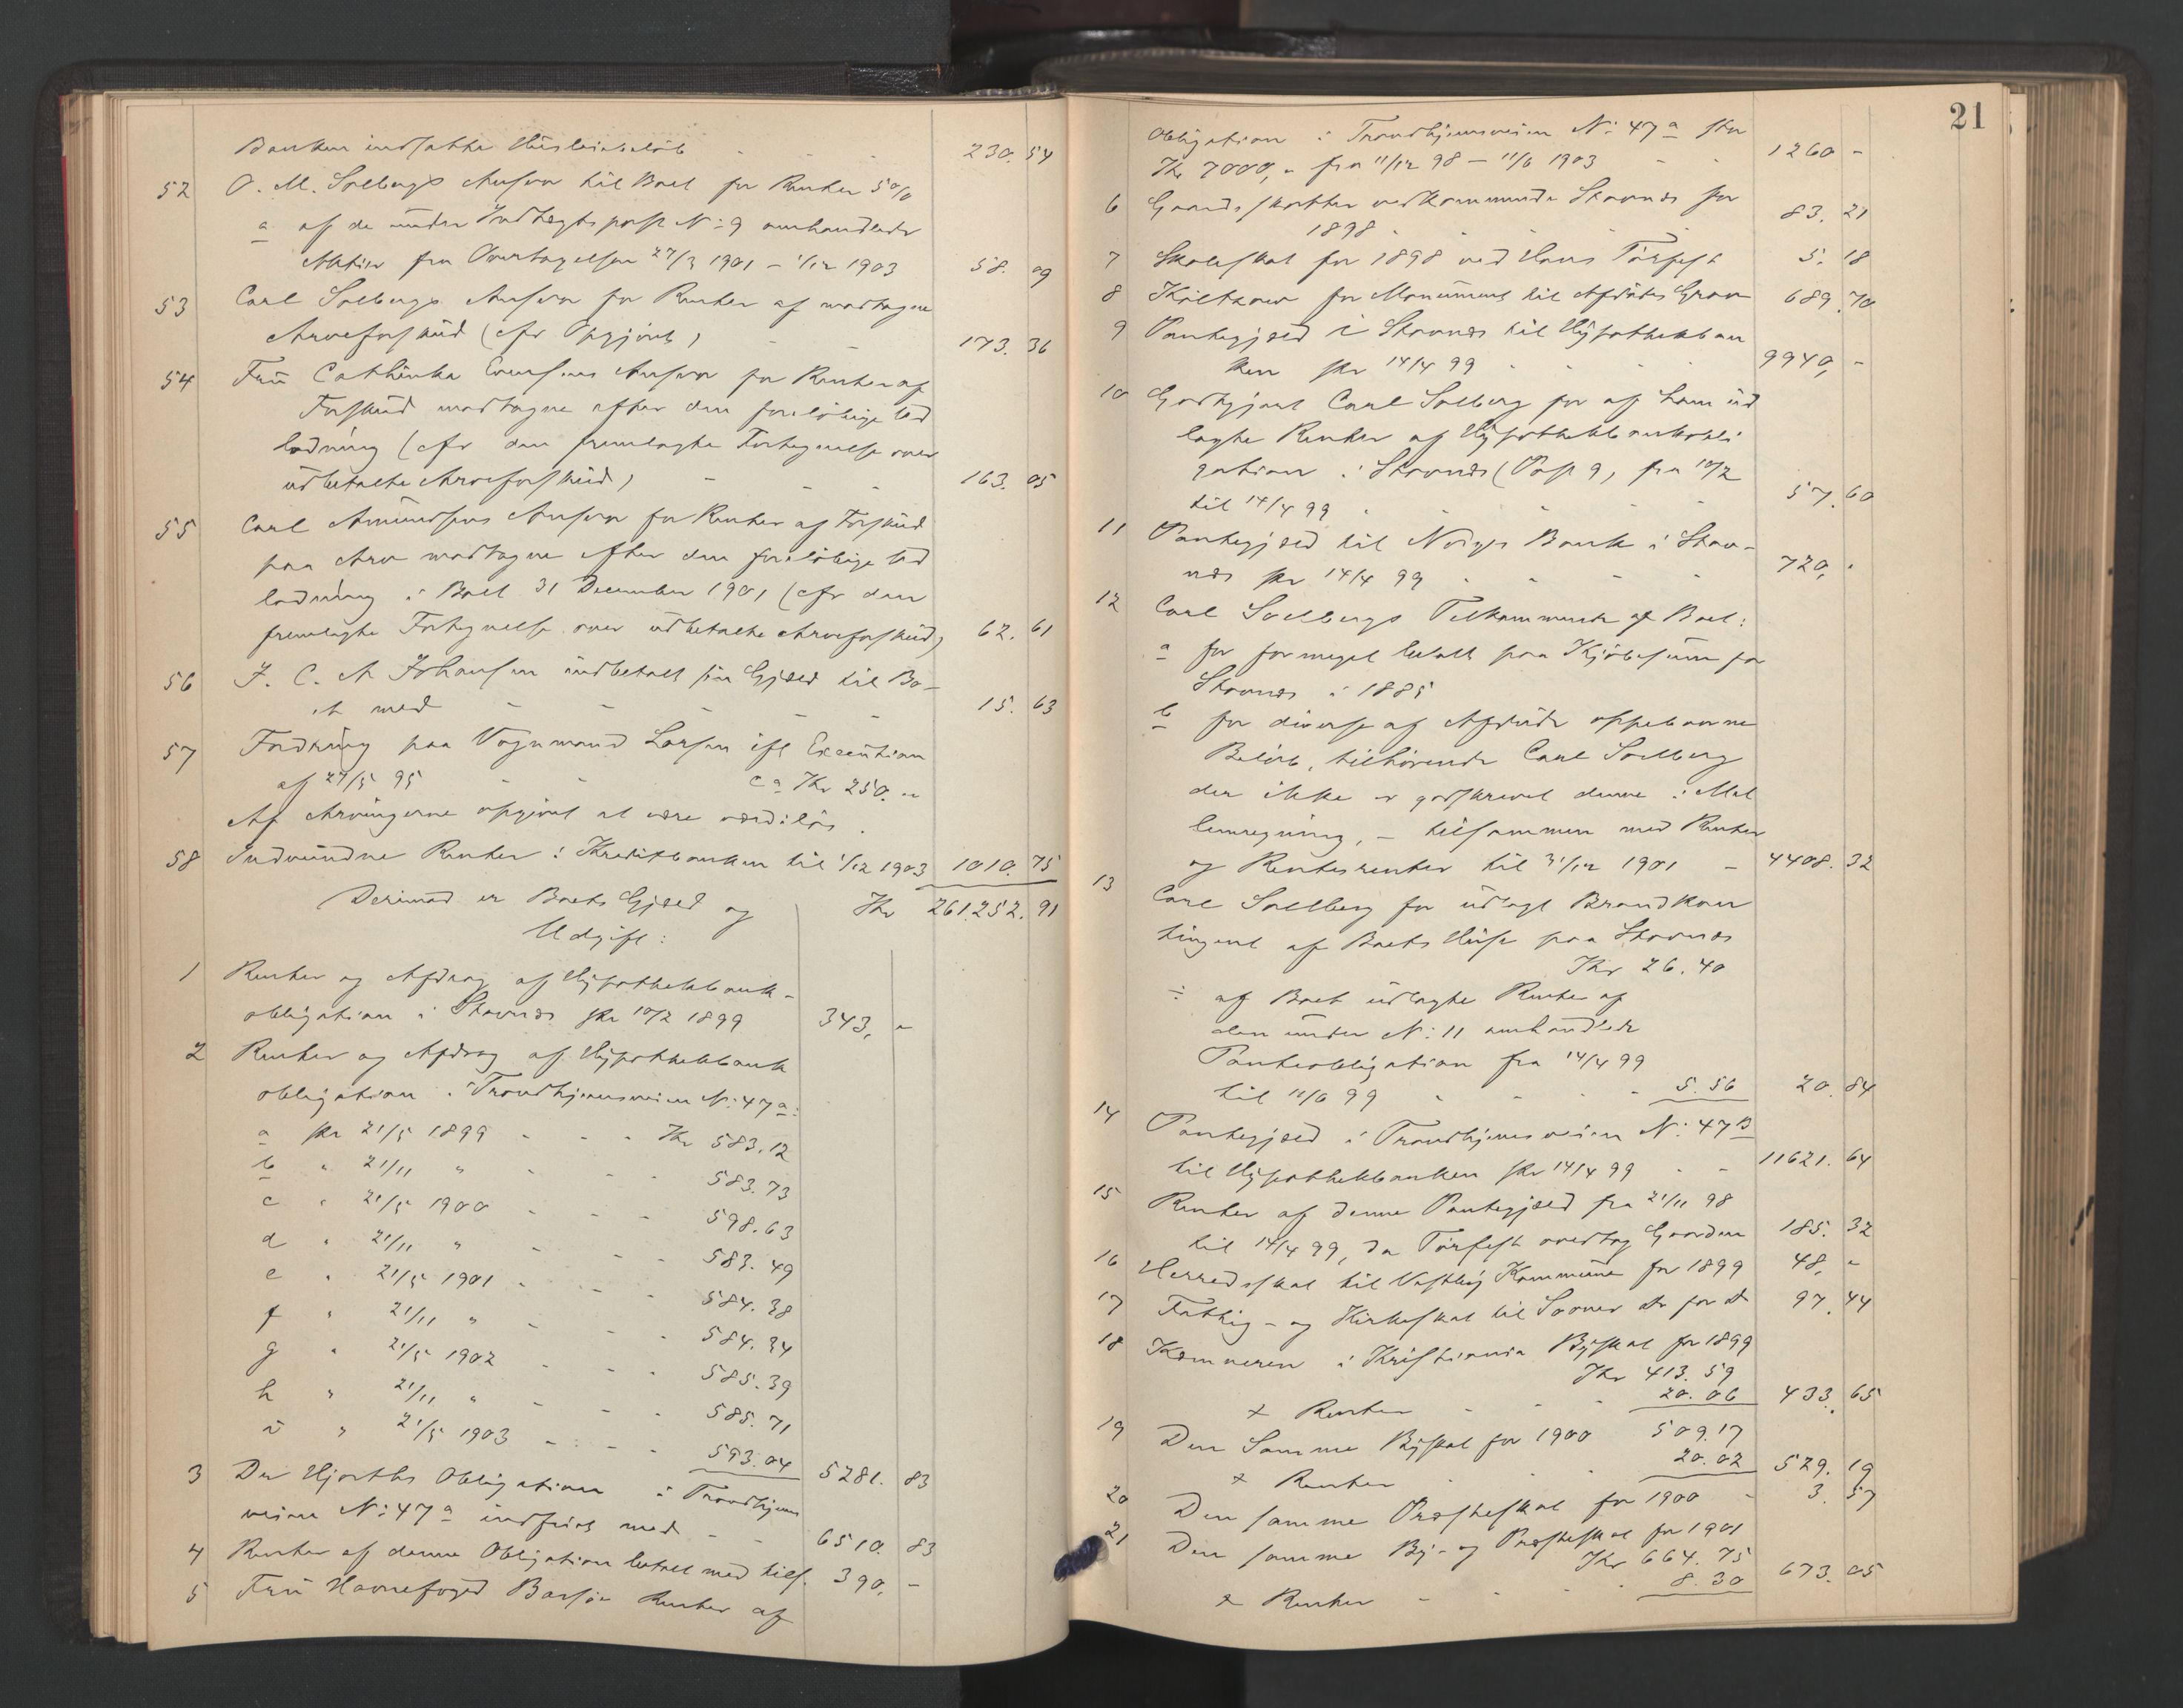 Banken indsatte Husleiebeløb - - - 230. 54
52 O. M. Solbergs Ansvar til Boet for Renter 5 o/o
a af de under Indtægtspost N: 9 omhandlede
Aktier fra Overtagelsen 27/3 1901 - 1/12 1903 58. 09
53 Carl Solbergs Ansvar for Renter af modtagne
Arveforskud (cfr Opgjøret) - - 173. 36
54 Fru Cathinka Evensens Ansvar for Renter af
Forskud modtagne efter den foreløbige Ud
lodning (cfr den fremlagte Fortegnelse over
udbetalte Arveforskud) - - - 163. 05
55 Carl Amundsens Ansvar for Renter af Forskud
paa Arv modtagne efter den foreløbige Ud
lodning i Boet 31 December 1901 (cfr den
fremlagte Fortegnelse over udbetalte Arveforskud) 62. 61
56 J. C. A Johansen indbetalt sin Gjæld til Bo-
et med - - - - - 15. 63
57 Fordring paa Vognmand Larsen ifl Execution
af 27/5 95 - - ca Kr 250. "
Af Arvingerne opgjort at være værdiløs.
58 Indvundne Renter i Kreditbanken til 1/12 1903 1010. 75
Derimod er Boets Gjæld og Kr 261.252. 91
Udgift:
1 Renter og Afdrag af Hypothekbank-
obligation i Stovnes pr 10/2 1899 343, "
2 Renter og Afdrag af Hypothekbank
obligation i Trondhjemsveien N: 47 a:
a pr 21/5 1899 - - - Kr 583.12
b " 21/11 " - - - 583.73
c " 21/5 1900 - - - 598.63
d " 21/11 " - - - 583.49
e " 21/5 1901 - - - 584.38
f " 21/11 " - - - 584.34
g " 21/5 1902 - - - 585.39
h " 21/11 " - - - 585.71
i " 21/5 1903 - - - 593.04 5281. 83
3 Dr Hjorths Obligation i Trondhjems
veien N: 47 a indfriet med - - 6510. 83
4 Renter af denne Obligation betalt med tils. 390, -
5 Fru Havnefoged Renter af
21
Obligation i Trondhjemsveien N: 47 a stor
Kr 7000, " fra 11/12 98 - 11/6 1903 - - 1260 -
6 Gaardsskatter vedkommende Stovnes for
1898 - - - - 83. 21
7 Skoleskat for 1898 ved Hans Torfest 5. 18
8 for Monument til Afdødes Grav 689. 70
9 Pantegjæld i Stovnes til Hypothekban
ken pr 14/4 99 - - - - 9940, -
10 Godtgjort Carl Solberg for af ham ud
lagte Renter af Hypothekbankobli
gation i Stovnes (Post 9) fra 10/2
til 14/4 99 - - - - 57. 60
11 Pantegjæld til Norges Bank i Stov-
nes pr 14/4 99 - - - - 720, "
12 Carl Solbergs Tilkommende af Boet:
a for formeget betalt paa Kjøbesum for
Stovnes i 1885
b for diverse af Afdøde oppebaarne
Beløb, tilhørende Carl Solberg
der ikke er godskrevet denne i Mel
lemregning, - tilsammen med Renter
og Rentesrenter til 31/12 1901 - 4408. 32
13 Carl Solberg for udlagt Brandkon
tingent af Boets Huse paa Stovnes
Kr 26.40
÷ af Boet udlagte Renter af
den under N: 11 omhandlede
Panteobligation fra 14/4 99
til 11/6 99 - - - - 5.56 20. 84
14 Pantegjæld i Trondhjemsveien N: 47 B
til Hypothekbanken pr 14/4 99 - - 11621. 64
15 Renter af denne Pantegjæld fra 21/11 98
til 14/4 99, da Torfest overtog Gaarden 185. 32
16 Herredsskat til Vestby Kommune for 1899 48, "
17 Fattig- og Kirkeskat til do for do 97. 44
18 Kæmneren i Kristiania Byskat for 1899
Kr 413.59
+ Renter - - - 20.06 433. 65
19 Den Samme Byskat for 1900 509.17
+ Renter - - - 20.02 529. 19
20 Den samme Præsteskat for 1900 - 3. 57
21 Den samme By- og Præsteskat for 1901
Kr 664.75
+ Renter - - - 8.30 673. 05